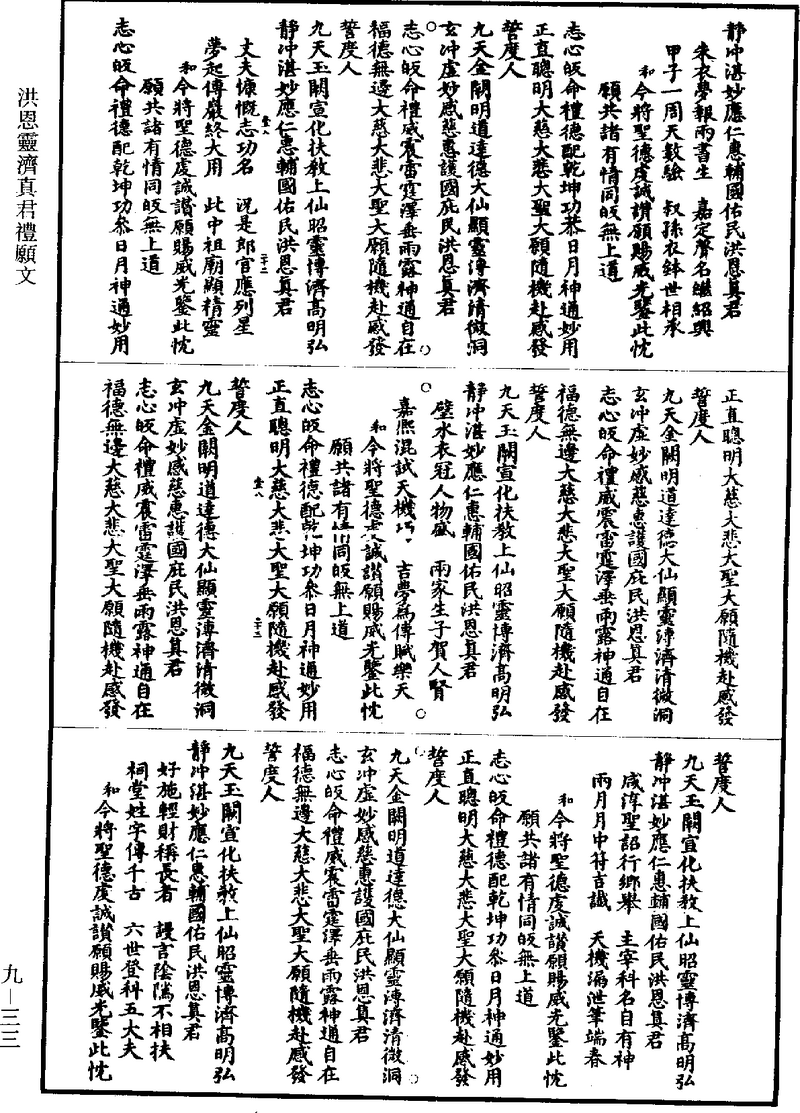 靜冲湛妙應仁惠輔國佑民洪恩真君
朱衣夢報兩書生　嘉定聲名繼紹興
甲子一周天數驗　叔孫衣鉢世相承
和今將聖德虔誠讚願賜威光鑒此忱
願共諸有情同皈無上道
志心皈命禮德配乾坤功叅日月神通妙用
正直聰明大慈大悲大聖大願隨機赴感發
誓度人
九天金闕明道達德大仙顯靈溥濟清微洞
玄冲虛妙感慈惠護國庇民洪恩真君
志心皈命禮威震雷霆澤垂雨露神通自在
福德無邊大慈大悲大聖大願隨機赴感發
誓度人
九天玉闕宣化扶教上仙昭靈博濟高明弘
靜冲湛妙應仁惠輔國佑民洪恩真君
丈夫慷慨志功名　況是郎官應列星
夢起傅巖終大用　此中祖廟顯精靈
和今將聖德虔誠讚願賜威光鑒此忱
願共諸有情同皈無上道
志心皈命禮德配乾坤功叅日月神通妙用
正直聰明大慈大悲大聖大願隨機赴感發
誓度人
九天金闕明道達德大仙顯靈溥濟清微洞
玄冲虛妙感慈惠護國庇民洪恩真君
志心皈命禮威震雷霆澤垂雨露神通自在
福德無邊大慈大悲大聖大願隨機赴感發
誓度人
九天玉闕宣化扶教上仙昭靈博濟高明弘
靜冲湛妙應仁惠輔國佑民洪恩真君
璧水衣冠人物盛　兩家生子賀人賢
嘉熙混試天機巧　吉夢為傳賦樂天
和今將聖德虔誠讚願賜威光鑒此忱
願共諸有情同皈無上道
志心皈命禮德配乾坤功叅日月神通妙用
正直聰明大慈大悲大聖大願隨機赴感發
誓度人
九天金闕明道達德大仙顯靈溥濟清微洞
玄冲虛妙感慈惠護國庇民洪恩真君
志心皈命禮威震雷霆澤垂雨露神通自在
福德無邊大慈大悲大聖大願隨機赴感發
誓度人
九天玉闕宣化扶教上仙昭靈博濟高明弘
靜冲湛妙應仁惠輔國佑民洪恩真君
咸淳聖詔行鄉舉　主宰科名自有神
兩月月中符吉讖　天機漏泄筆端春
和今將聖德虔誠讚願賜威光鑒此忱
願共諸有情同皈無上道
志心皈命禮德配乾坤功叅日月神通妙用
正直聰明大慈大悲大聖大願隨機赴感發
誓度人
九天金闕明道達德大仙顯靈溥濟清微洞
玄冲虛妙感慈惠護國庇民洪恩真君
志心皈命禮威震雷霆澤垂雨露神通自在
福德無邊大慈大悲大聖大願隨機赴感發
誓度人
九天玉闕宣化扶教上仙昭靈博濟高明弘
靜冲湛妙應仁惠輔國佑民洪恩真君
好施輕財稱長者　謾言陰騭不相扶
祠堂姓字傳千古　六世登科五大夫
和今將聖德虔誠讚願賜威光鑒此忱
洪恩靈濟真君禮願文
九—三三